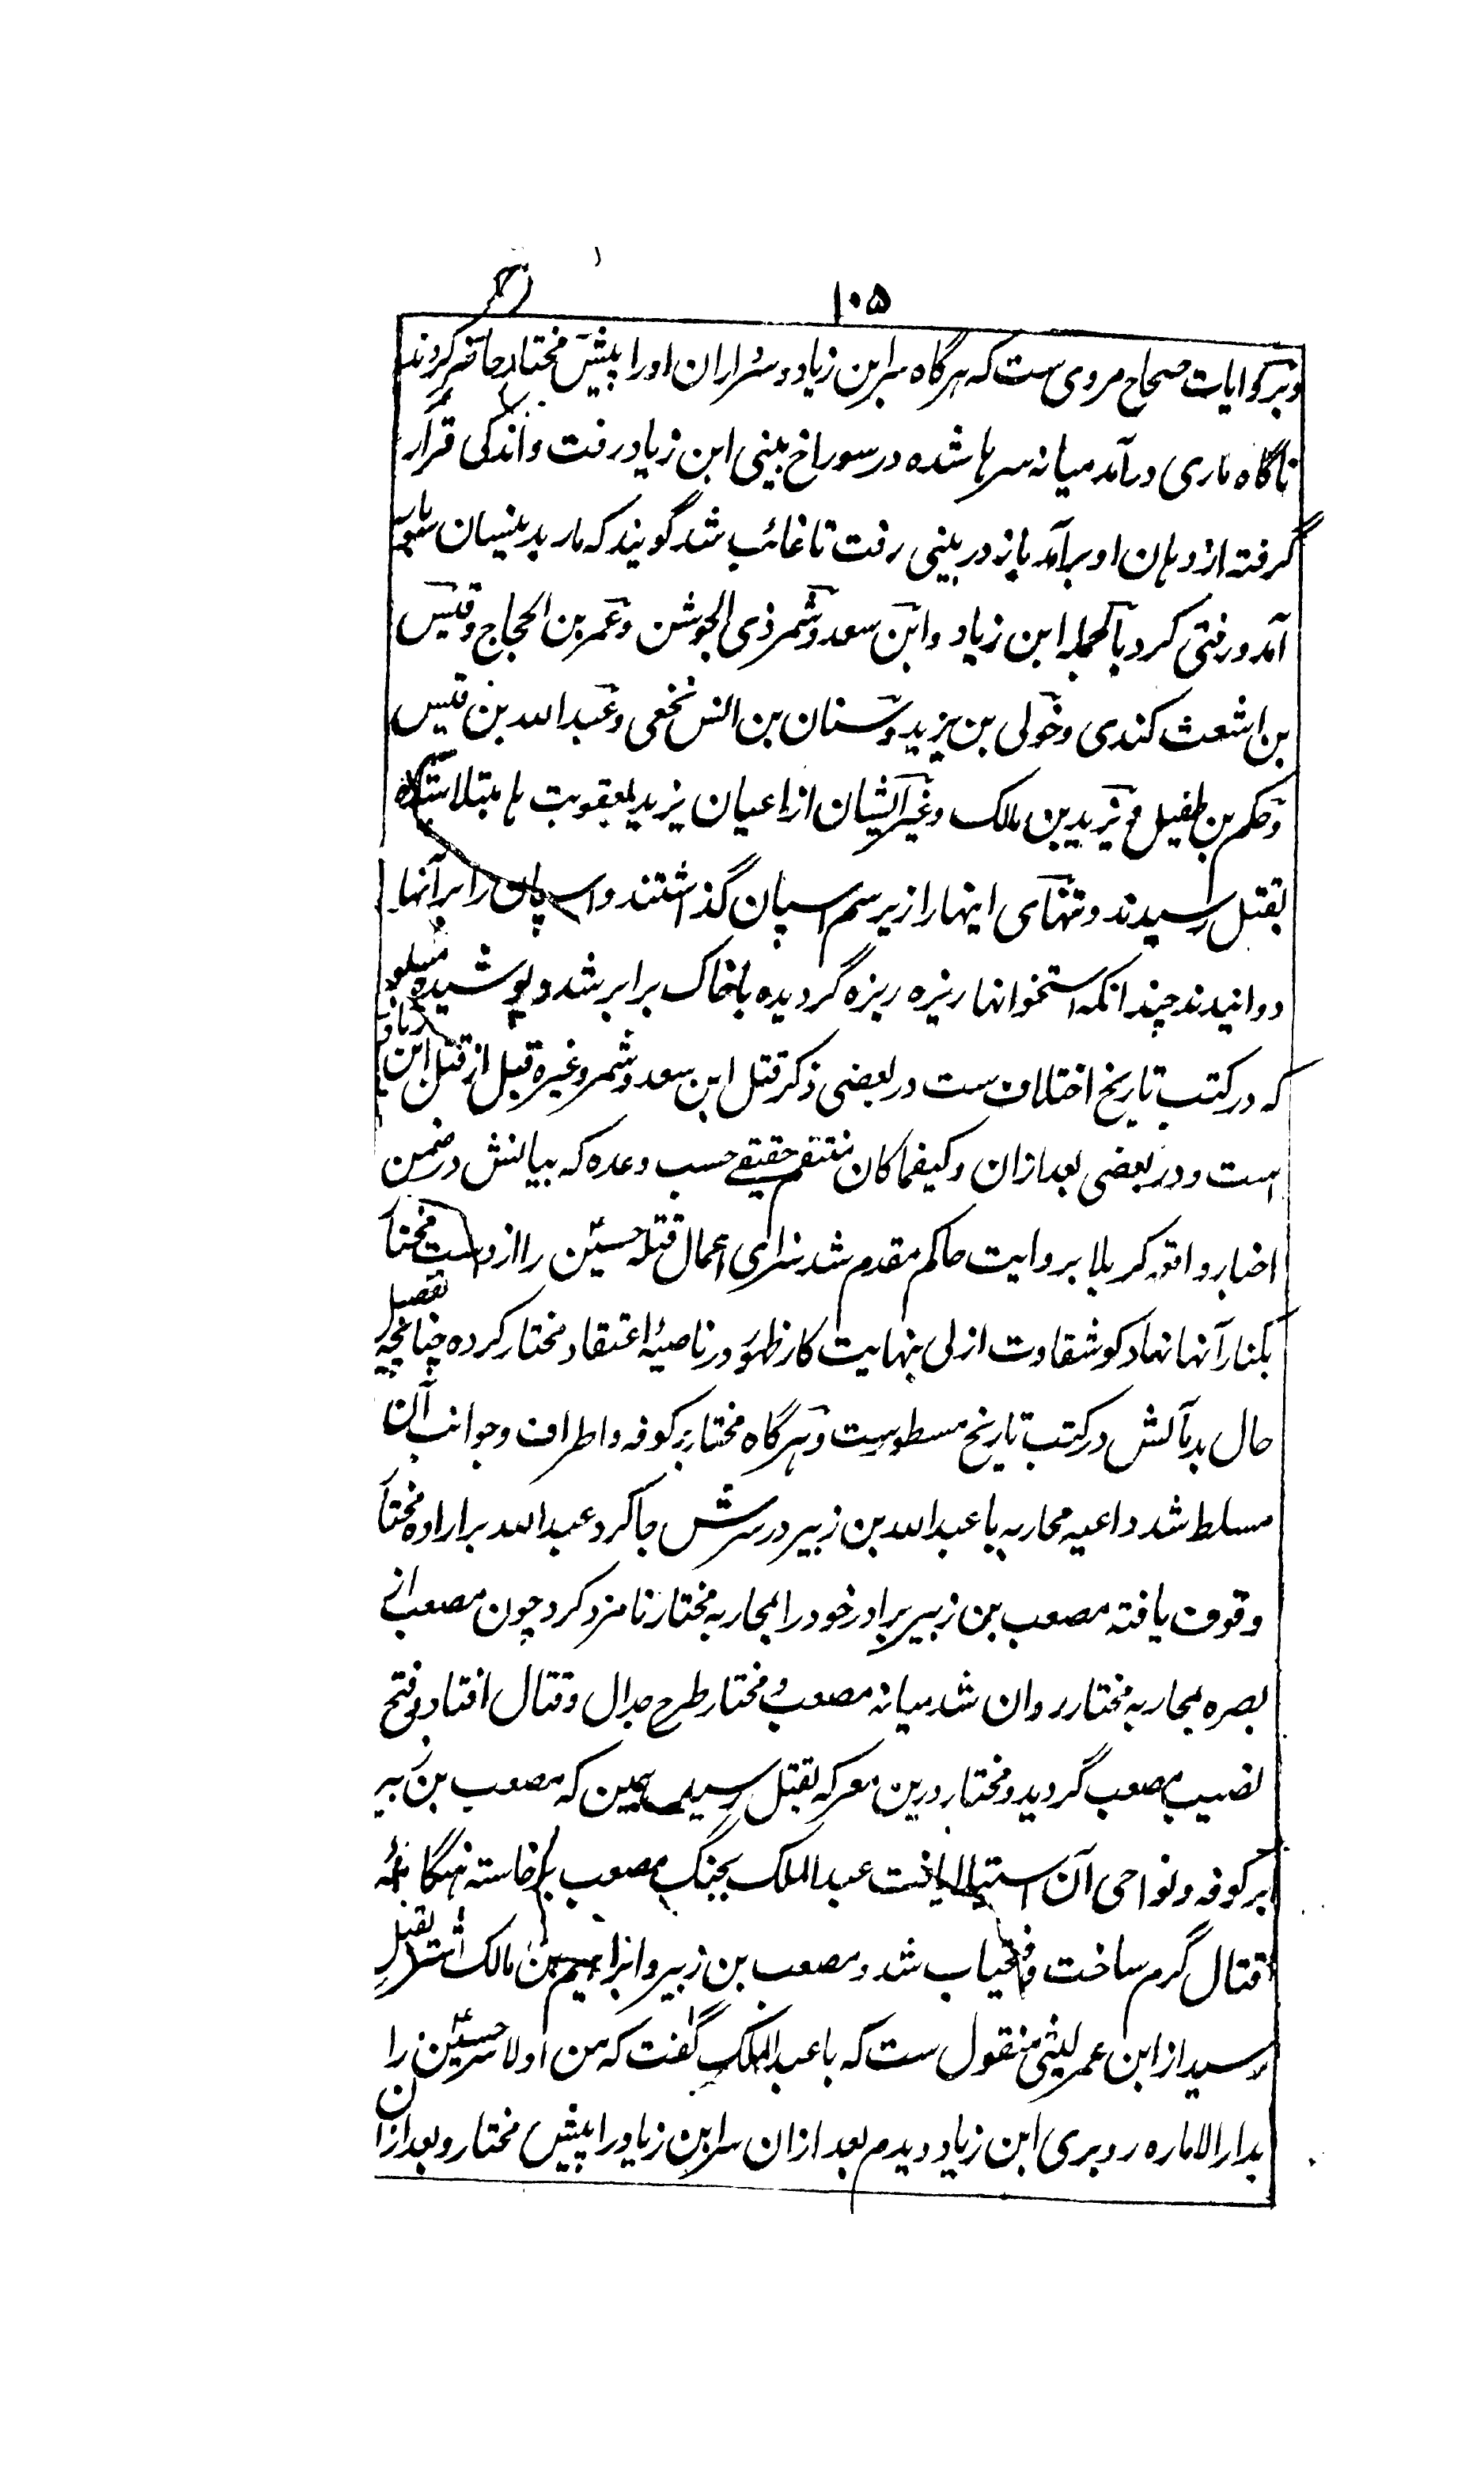 ۱۰۵
وبروایات صحاح مروی ست که هرگاه سر ابن زیاد و سرداران او را پیش مختار حاضر کردند
ناگاه ماری درآمد میانه سرها شده در سوراخ بینی ابن زیاد رفت و اندکی قرار
گرفته از دهان او برآمد باز در بینی رفت تا غائب شد گویند که مار بدینسان سه بار
آمد و رفتی کرد بالجمله ابن زیاد و ابن سعد و شمر ذی الجوشن و عمر بن الحجاج و قیس
بن اشعث کندی و خولی بن یزید و سنان بن انس نخعی و عبد الله بن قیس
و حکم بن طفیل و یزید بن مالک و غیر ایشان از اعیان یزید بعقوبت ها مبتلا شده
بقتل رسیدند و تنهای اینها را زیر سم اسپان گذاشتند و اسپان را بر آنها
دوانیدند چندانکه استخوانها ریزه ریزه گردیده با خاک برابر شد و پوشیده
که در کتب تاریخ اختلاف ست در بعضی ذکر قتل ابن سعد و شمر و غیره قبل از قتل ابن زیاد
است و در بعضی بعد ازان و کیفما کان منتقم حقیقے حسب وعده که بیانش در ضمن
اخبار واقعه کربلا بروایت حاکم مقدم شد سزای اعمال قتله حسین را از دست مختار
بکنار آنها نهاد کو شقاوت ازلی بنهایت کار ظهور در ناصیهٔ اعتقاد مختار کرده چنانچه تفصیل
حال بدمآلش در کتب تاریخ مسطورست و هرگاه مختار بر کوفه و اطراف و جوانب آن
مسلط شد داعیه محاربه با عبد الله بن زبیر در سرش جا کرد عبد الله بر اراده مختار
وقوف یافته مصعب بن زبیر برادر خود را بمحاربه مختار نامزد کرد چون مصعب از
بصره بمحاربه مختار روان شد میانه مصعب و مختار طرح جدال و قتال افتاد و فتح
نصیب مصعب گردید و مختار درین معرکه بقتل رسید همین که مصعب بن زبیر
بر کوفه و نواحی آن استیلا یافت عبد الملک بجنگ مصعب برخاسته هنگامه
قتال گرم ساخت و فتحیاب شد و مصعب بن زبیر و ابراهیم بن مالک اشتر بقتل
رسید از ابن عمر لیثی منقول ست که با عبد الملک گفت که من اولا سر حسین را
بدار الاماره روبروی ابن زیاد دیدم بعد ازان سر ابن زیاد را پیش مختار و بعد ازان